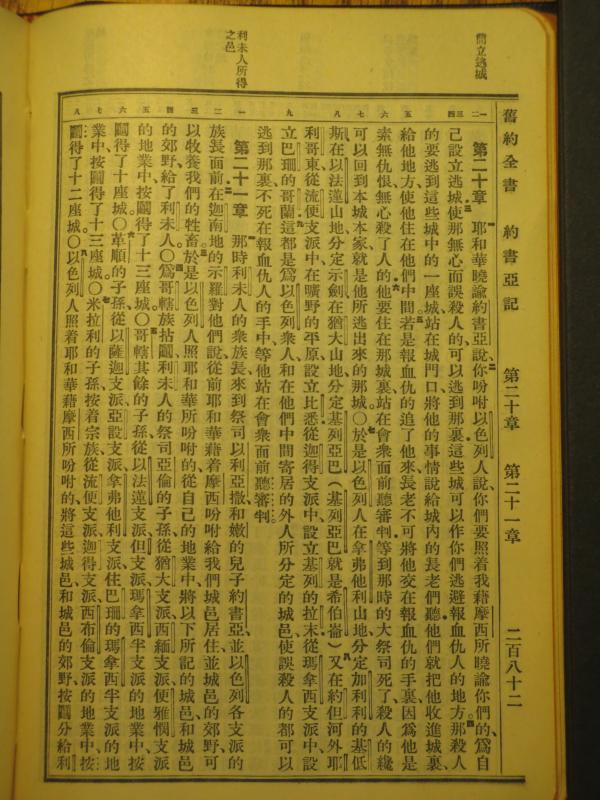 舊約全書 約書亞記 第二十章 第二十一章 二百八十二
簡立逃城
利未人所得
之邑
第二十章 耶和華曉諭約書亞說、你吩咐以色列人說、你們要照着我藉摩西所曉諭你們的、爲自
己設立逃城、使那無心而誤殺人的、可以逃到那裏、這些城可以作你們逃避報血仇人的地方。那殺人
的要逃到這些城中的一座城、站在城門口、將他的事情說給城內的長老們聽、他們就把他收進城裏、
給他地方、使他住在他們中間。若是報血仇的追了他來、長老不可將他交在報血仇的手裏、因爲他是
素無仇恨、無心殺了人的。他要住在那城裏、站在會衆面前聽審判、等到那時的大祭司死了、殺人的纔
可以回到本城本家、就是他所逃出來的那城。〇於是以色列人在拿弗他利山地、分定加利利的基低
斯、在以法蓮山地、分定示劍、在猶大山地、分定基列亞巴、(基列亞巴就是希伯崙)又在約但河外耶
利哥東、從流便支派中、在曠野的平原、設立比悉、從迦得支派中、設立基列的拉末、從瑪拿西支派中、設
立巴珊的哥蘭。這都是爲以色列衆人、和在他們中間寄居的外人、所分定的城邑、使誤殺人的都可以
逃到那裏、不死在報血仇人的手中、等他站在會衆面前聽審判。
第二十一章 那時利未人的衆族長來到祭司以利亞撒、和嫩的兒子約書亞、並以色列各支派的
族長面前、在迦南地的示羅對他們說、從前耶和華藉着摩西吩咐給我們城邑居住、並城邑的郊野可
以牧養我們的牲畜。於是以色列人照耶和華所吩咐的、從自己的地業中、將以下所記的城邑、和城邑
的郊野、給了利未人。〇爲哥轄族拈鬮、利未人的祭司亞倫的子孫、從猶大支派、西緬支派、便雅憫支派
的地業中、按鬮得了十三座城。〇哥轄其餘的子孫、從以法蓮支派、但支派、瑪拿西半支派的地業中、按
鬮得了十座城。〇革順的子孫、從以薩迦支派、亞設支派、拿弗他利支派、住巴珊的瑪拿西半支派的地
業中、按鬮得了十三座城。〇米拉利的子孫、按着宗族、從流便支派、迦得支派、西布倫支派的地業中、按
鬮得了十二座城。〇以色列人照着耶和華藉摩西所吩咐的、將這些城邑、和城邑的郊野、按鬮分給利